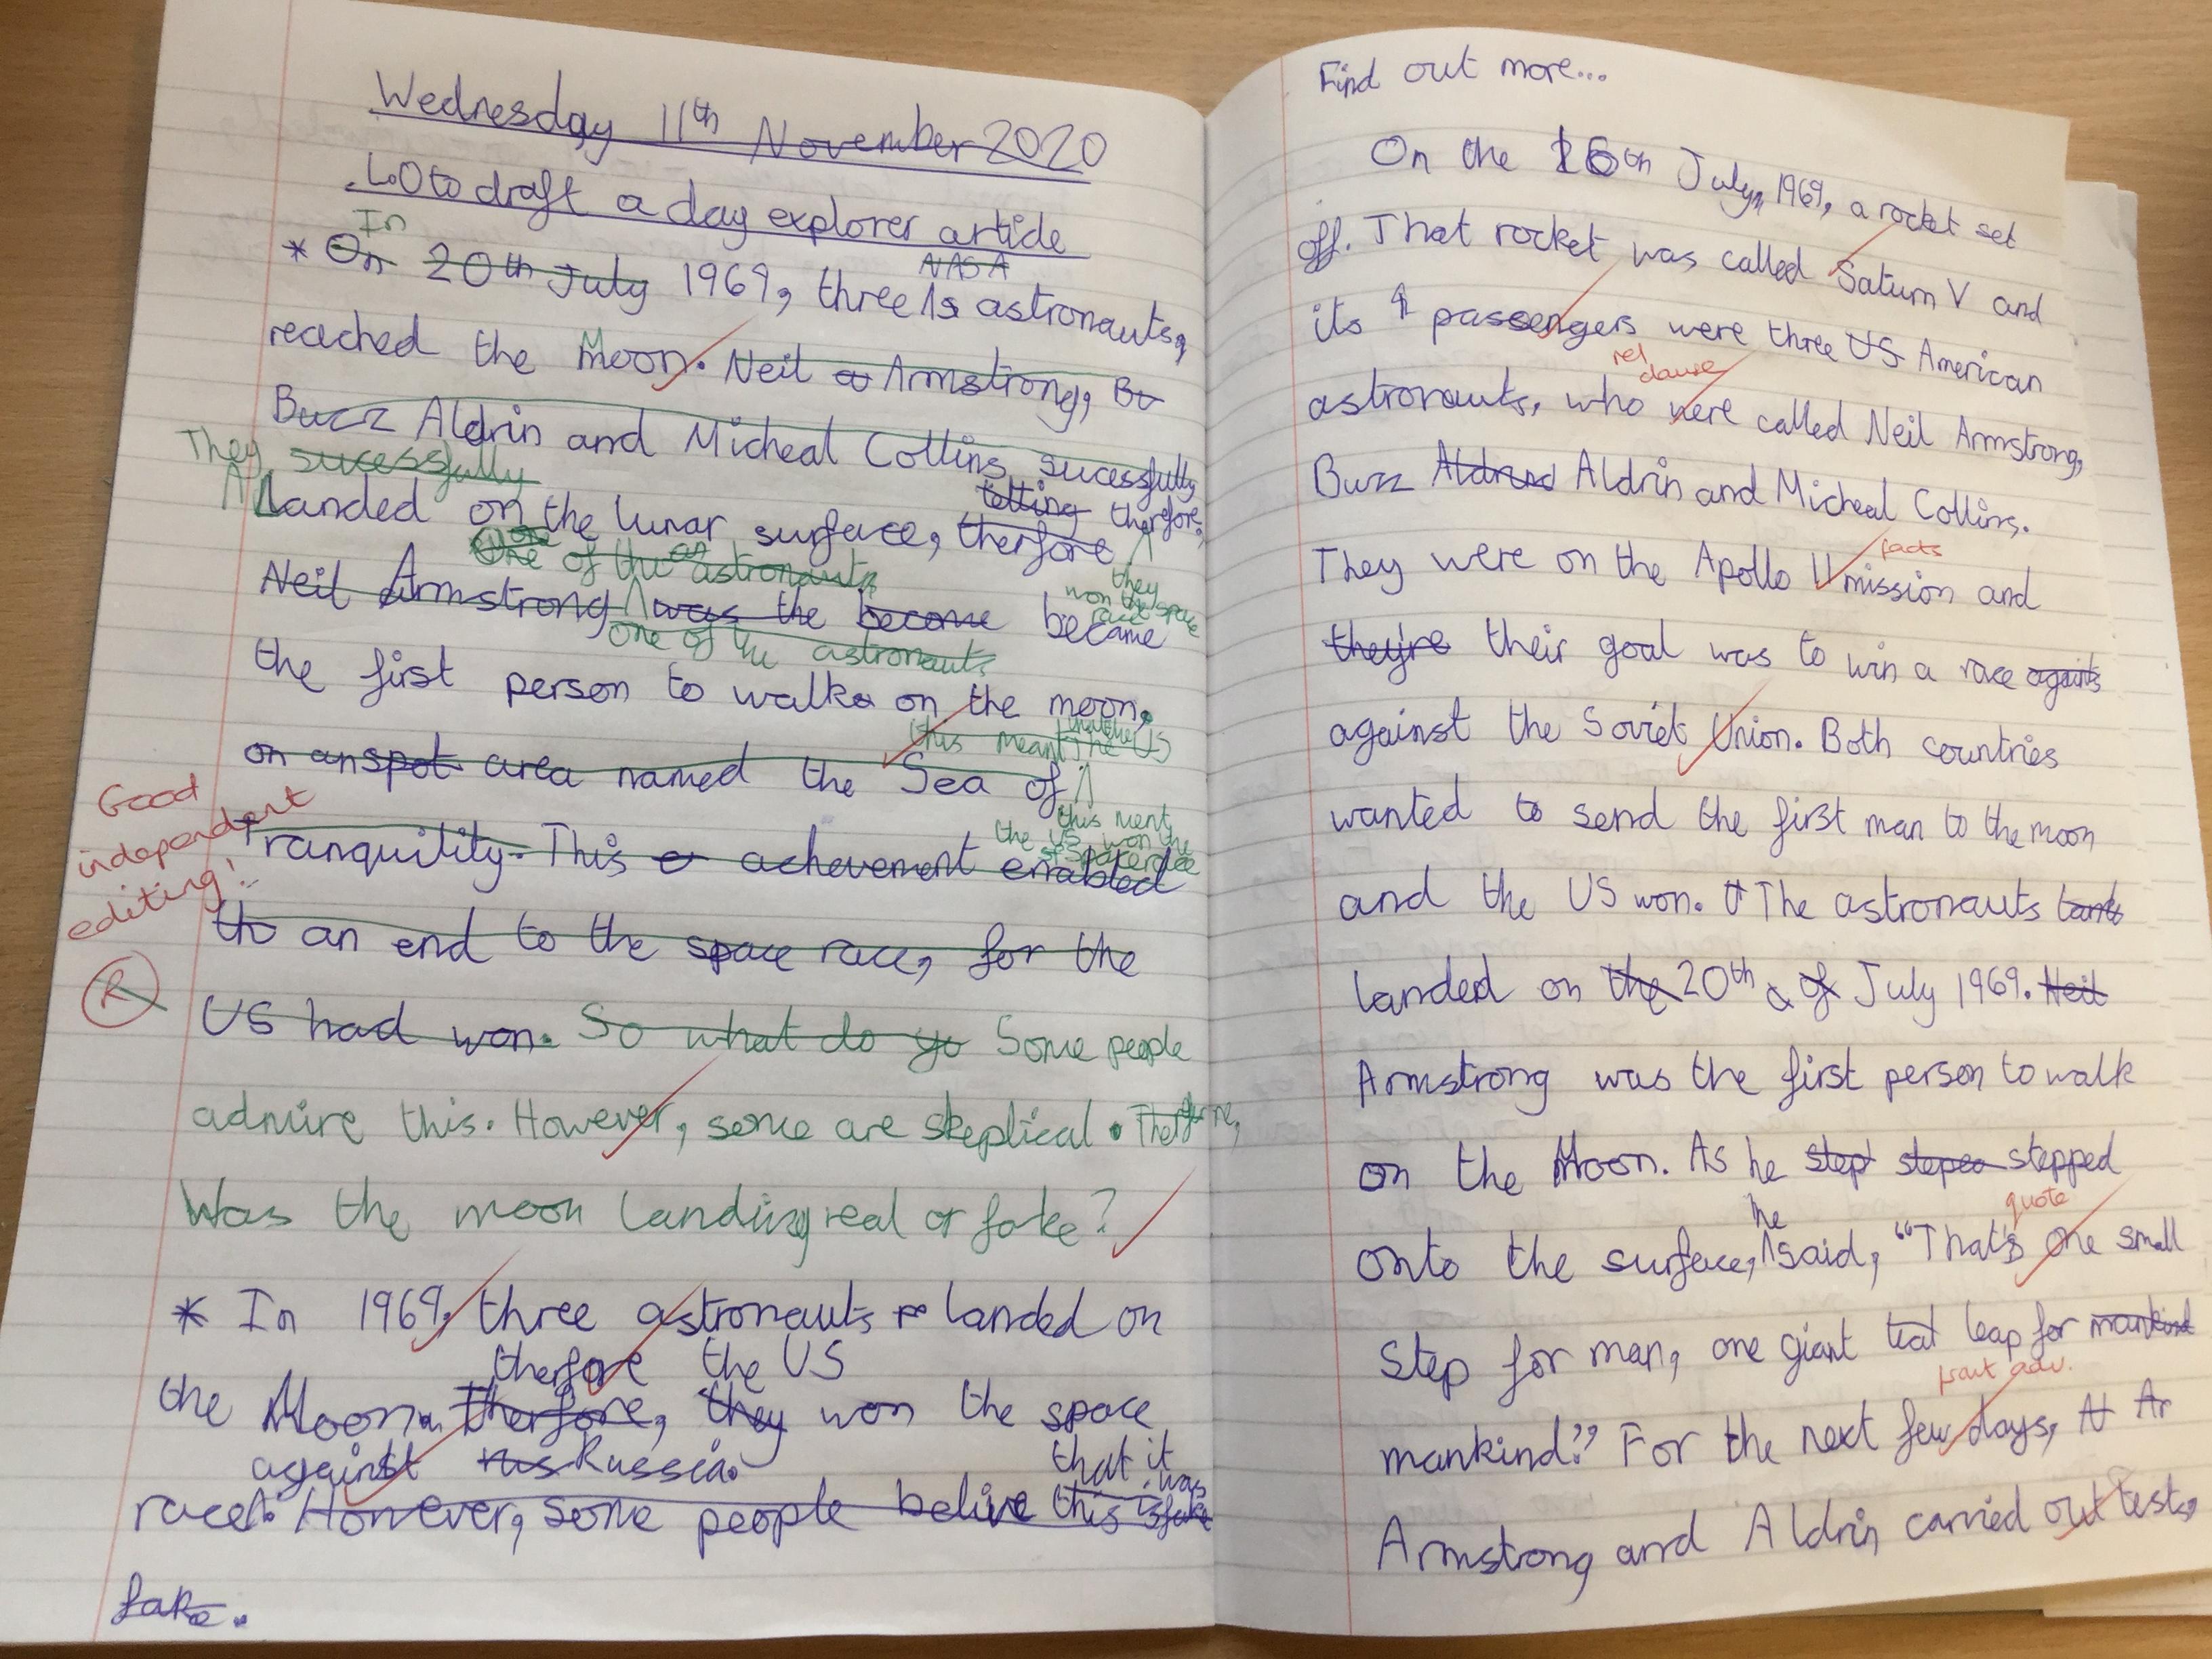 Wednesday 11th November 2020
L.O to draft a day explorer article
In
NASA
* On 20th July 1969, three astronauts,
reached the Moon. Neil Armstrong, Bu
Buzz Aldrin and Micheal Collins sucessfully
They sucessfully
telling therefore,
landed on the lunar surface, therfore
One of the astronauts
they won the space race
Neil Armstrong was the become became
one of the astronauts
the first person to walk on the moon,
this meant the US
on an spot area named the Sea of
this ment the US won the
Tranquility. This achevement enabled
Good independent editing!
R
to an end to the space race, for the
US had won. So what do yo Some people
admire this. However, some are skeptical. Therfore,
Was the moon landing real or fake?
* In 1969, three astronauts landed on
therfore the US
the Moon. Therfore, they won the space
against Rus Russia.
that it was
race. However, some people belive this is fake
fake.
Find out more...
On the 16th July, 1969, a rocket set
off. That rocket was called Saturn V and
its passengers were three US American
rel clause
astronauts, who were called Neil Armstrong,
Buzz Aldrend Aldrin and Micheal Collins.
facts
They were on the Apollo 11 mission and
they're their goal was to win a race agaits
against the Soviet Union. Both countries
wanted to send the first man to the moon
and the US won. The astronauts
landed on the 20th of July 1969. Neil
Armstrong was the first person to walk
on the Moon. As he step steped stepped
he
quote
onto the surface, said, "That's one small
step for man, one giant leap for mankind
front adv.
mankind." For the next few days, Ar
Armstrong and Aldrin carried out tests,